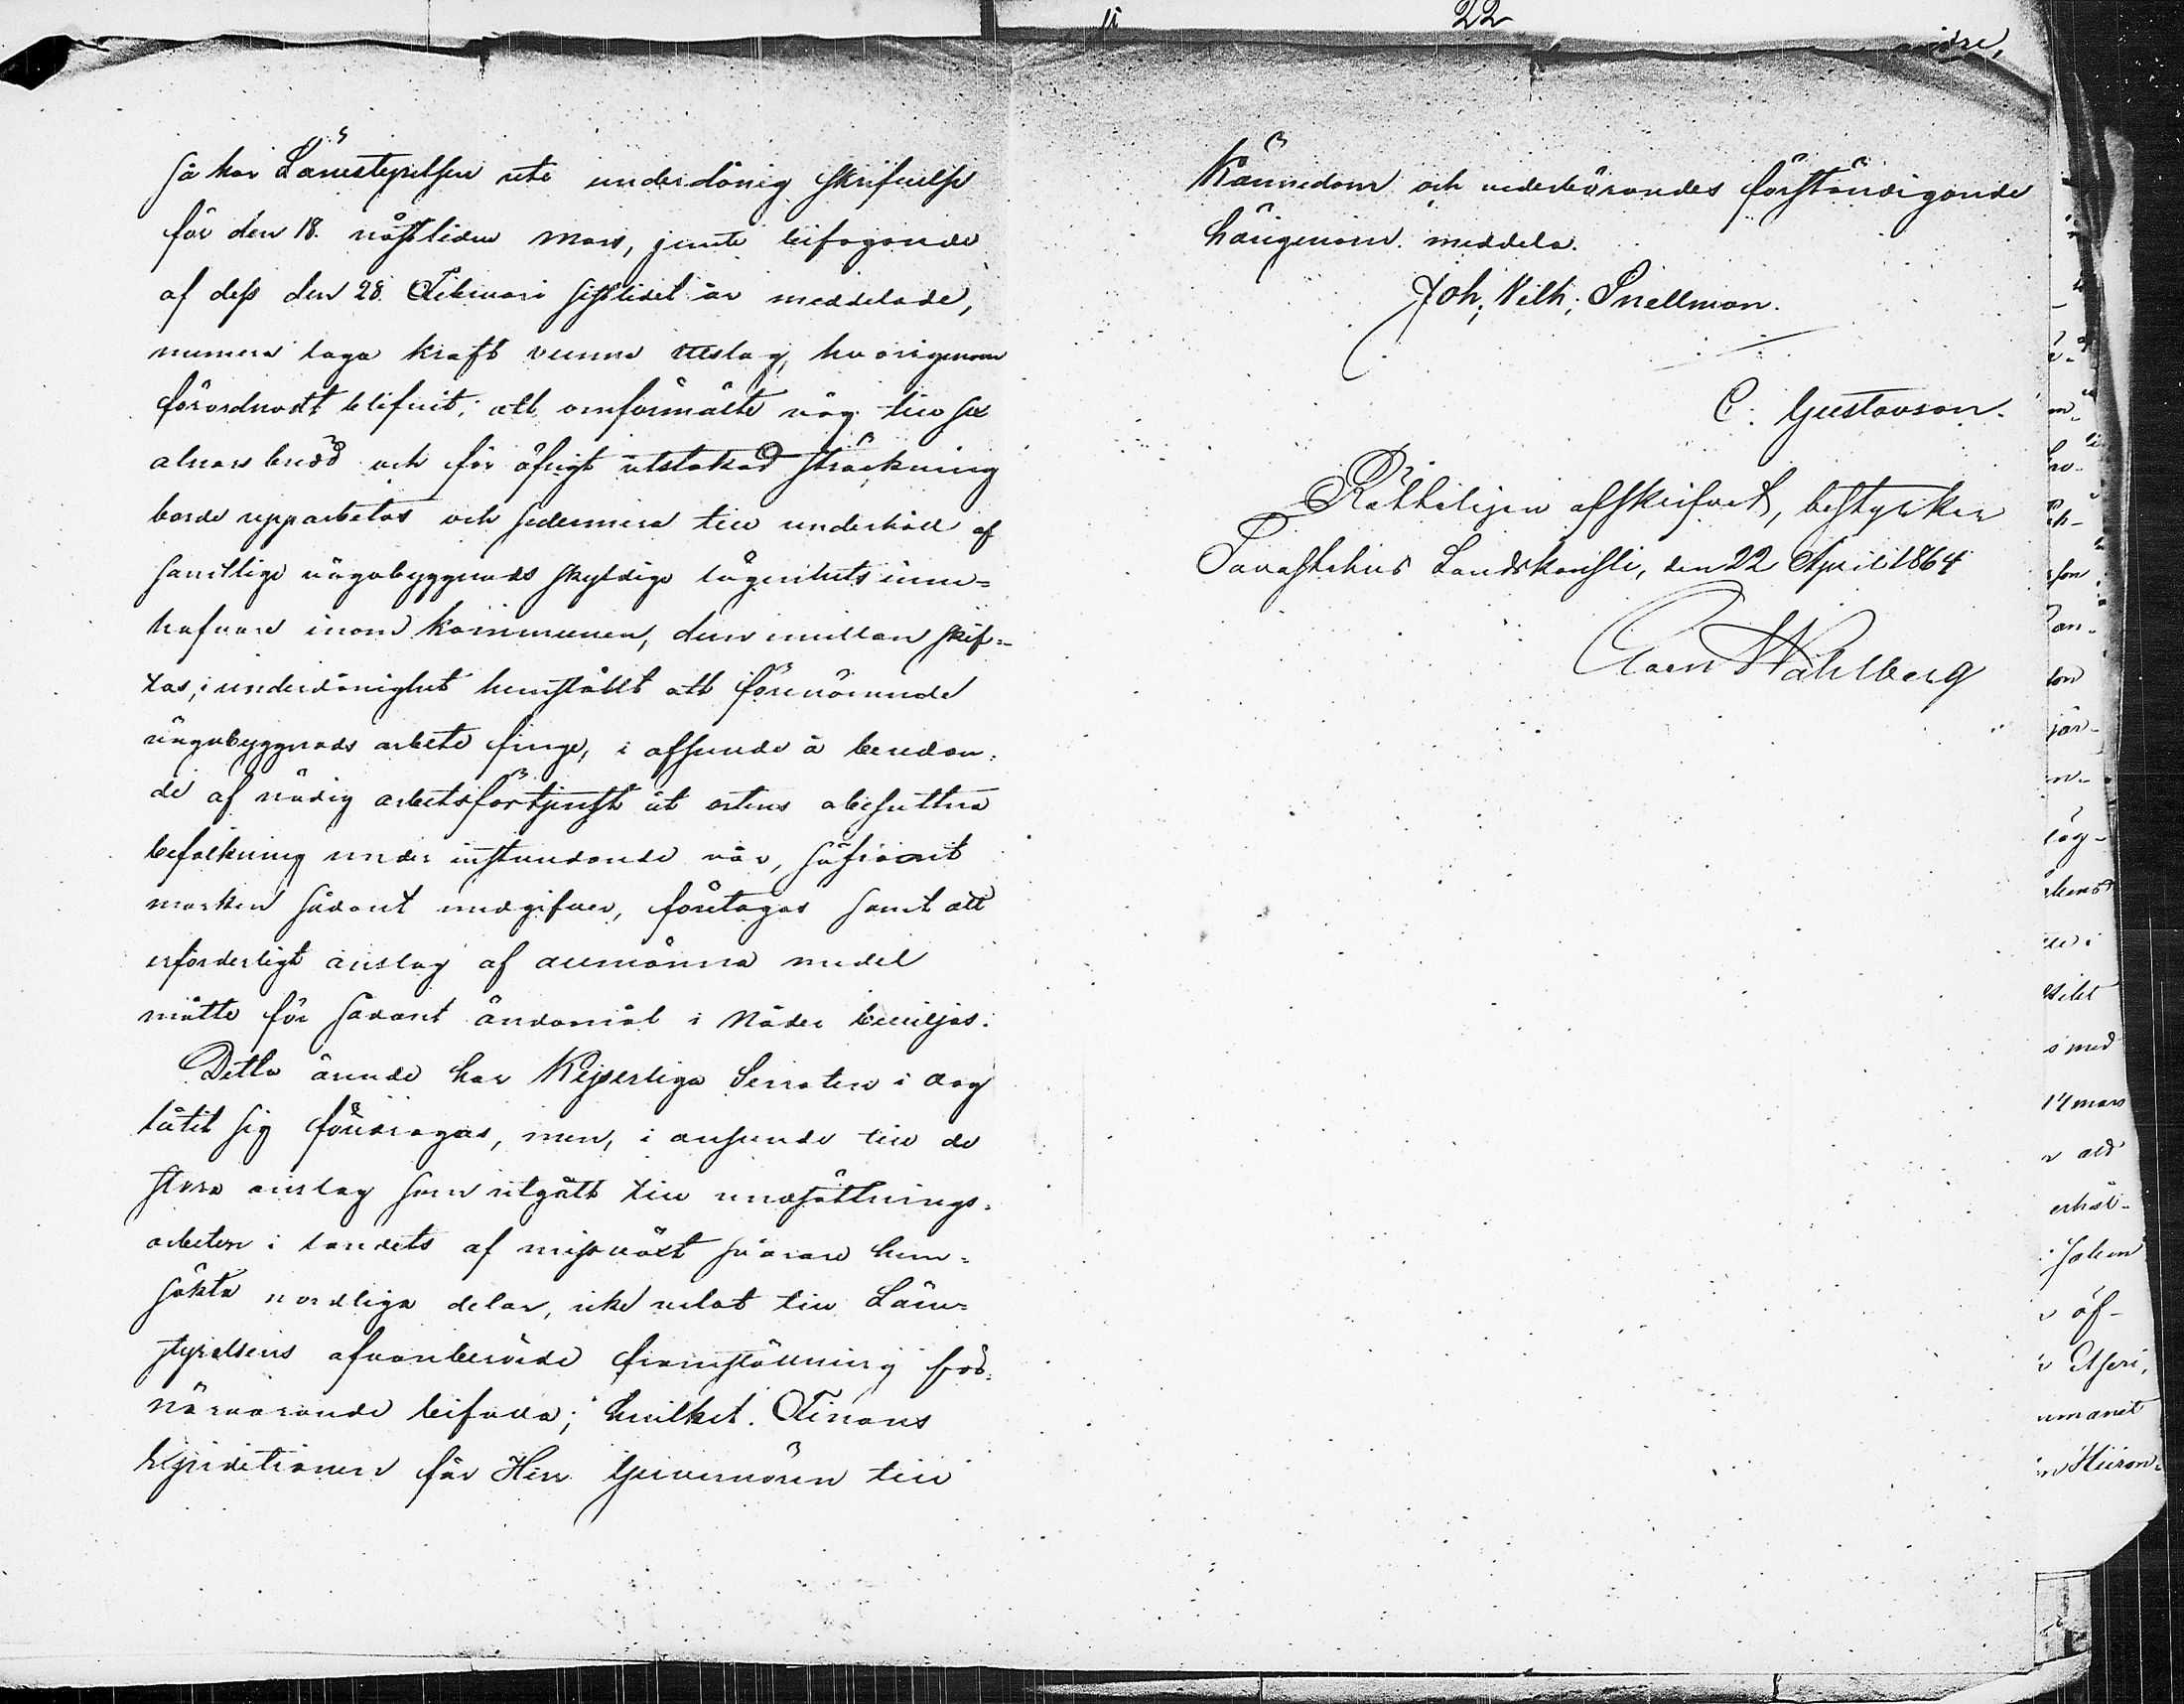 så har Länestyrelsen uti underdånig skrifvelse
för den 18. nästlidne Mars, jemte bifogande
af dess den 28. Februari sistlidet år meddelade,
numera laga kraft vunna utslag, hvarigenom
förordnadt blifvit, att omförmälte väg till sex
alnars bredd och för öfrigt utstakad sträckning
borde upparbetas och sedermera till underhåll af
samtlige vägabyggnads skyldige lägenhets inne-
hafvare inom kommunen, dem emellan skif-
tas, i underdånighet hemställt att förenämnde
vägabyggnads arbete finge, i afseende å beredan-
de af nödig arbetsförtjenst åt ortens obesuttna
befolkning under instundande vår, såframt
marken sådant medgifver, företagas samt att
erforderligt anslag af allmänna medel
måtte för sådant ändamål i Nåder beviljas.
Detta ärende har Kejserliga Senaten i dag
låtit sig föredragas, men, i anseende till de
stora anslag som utgått till undsättnings-
arbeten i landets af missväxt svårare hem-
sökta nordliga delar, icke velat till Läne-
styrelsens ofvanberörde framställning för
närvarande bifalla; hvilket Finans
Expeditionen får Herr Guvernören till
22
Kännedom och vederbörandes förständigande
härigenom meddela.
Joh. Vilh. Snellman.
C. Gustavson.
Rätteligen afskrifvet, bestyrker
Tavastehus Landskansli, den 22 April 1864
Wahlberg
14 mars